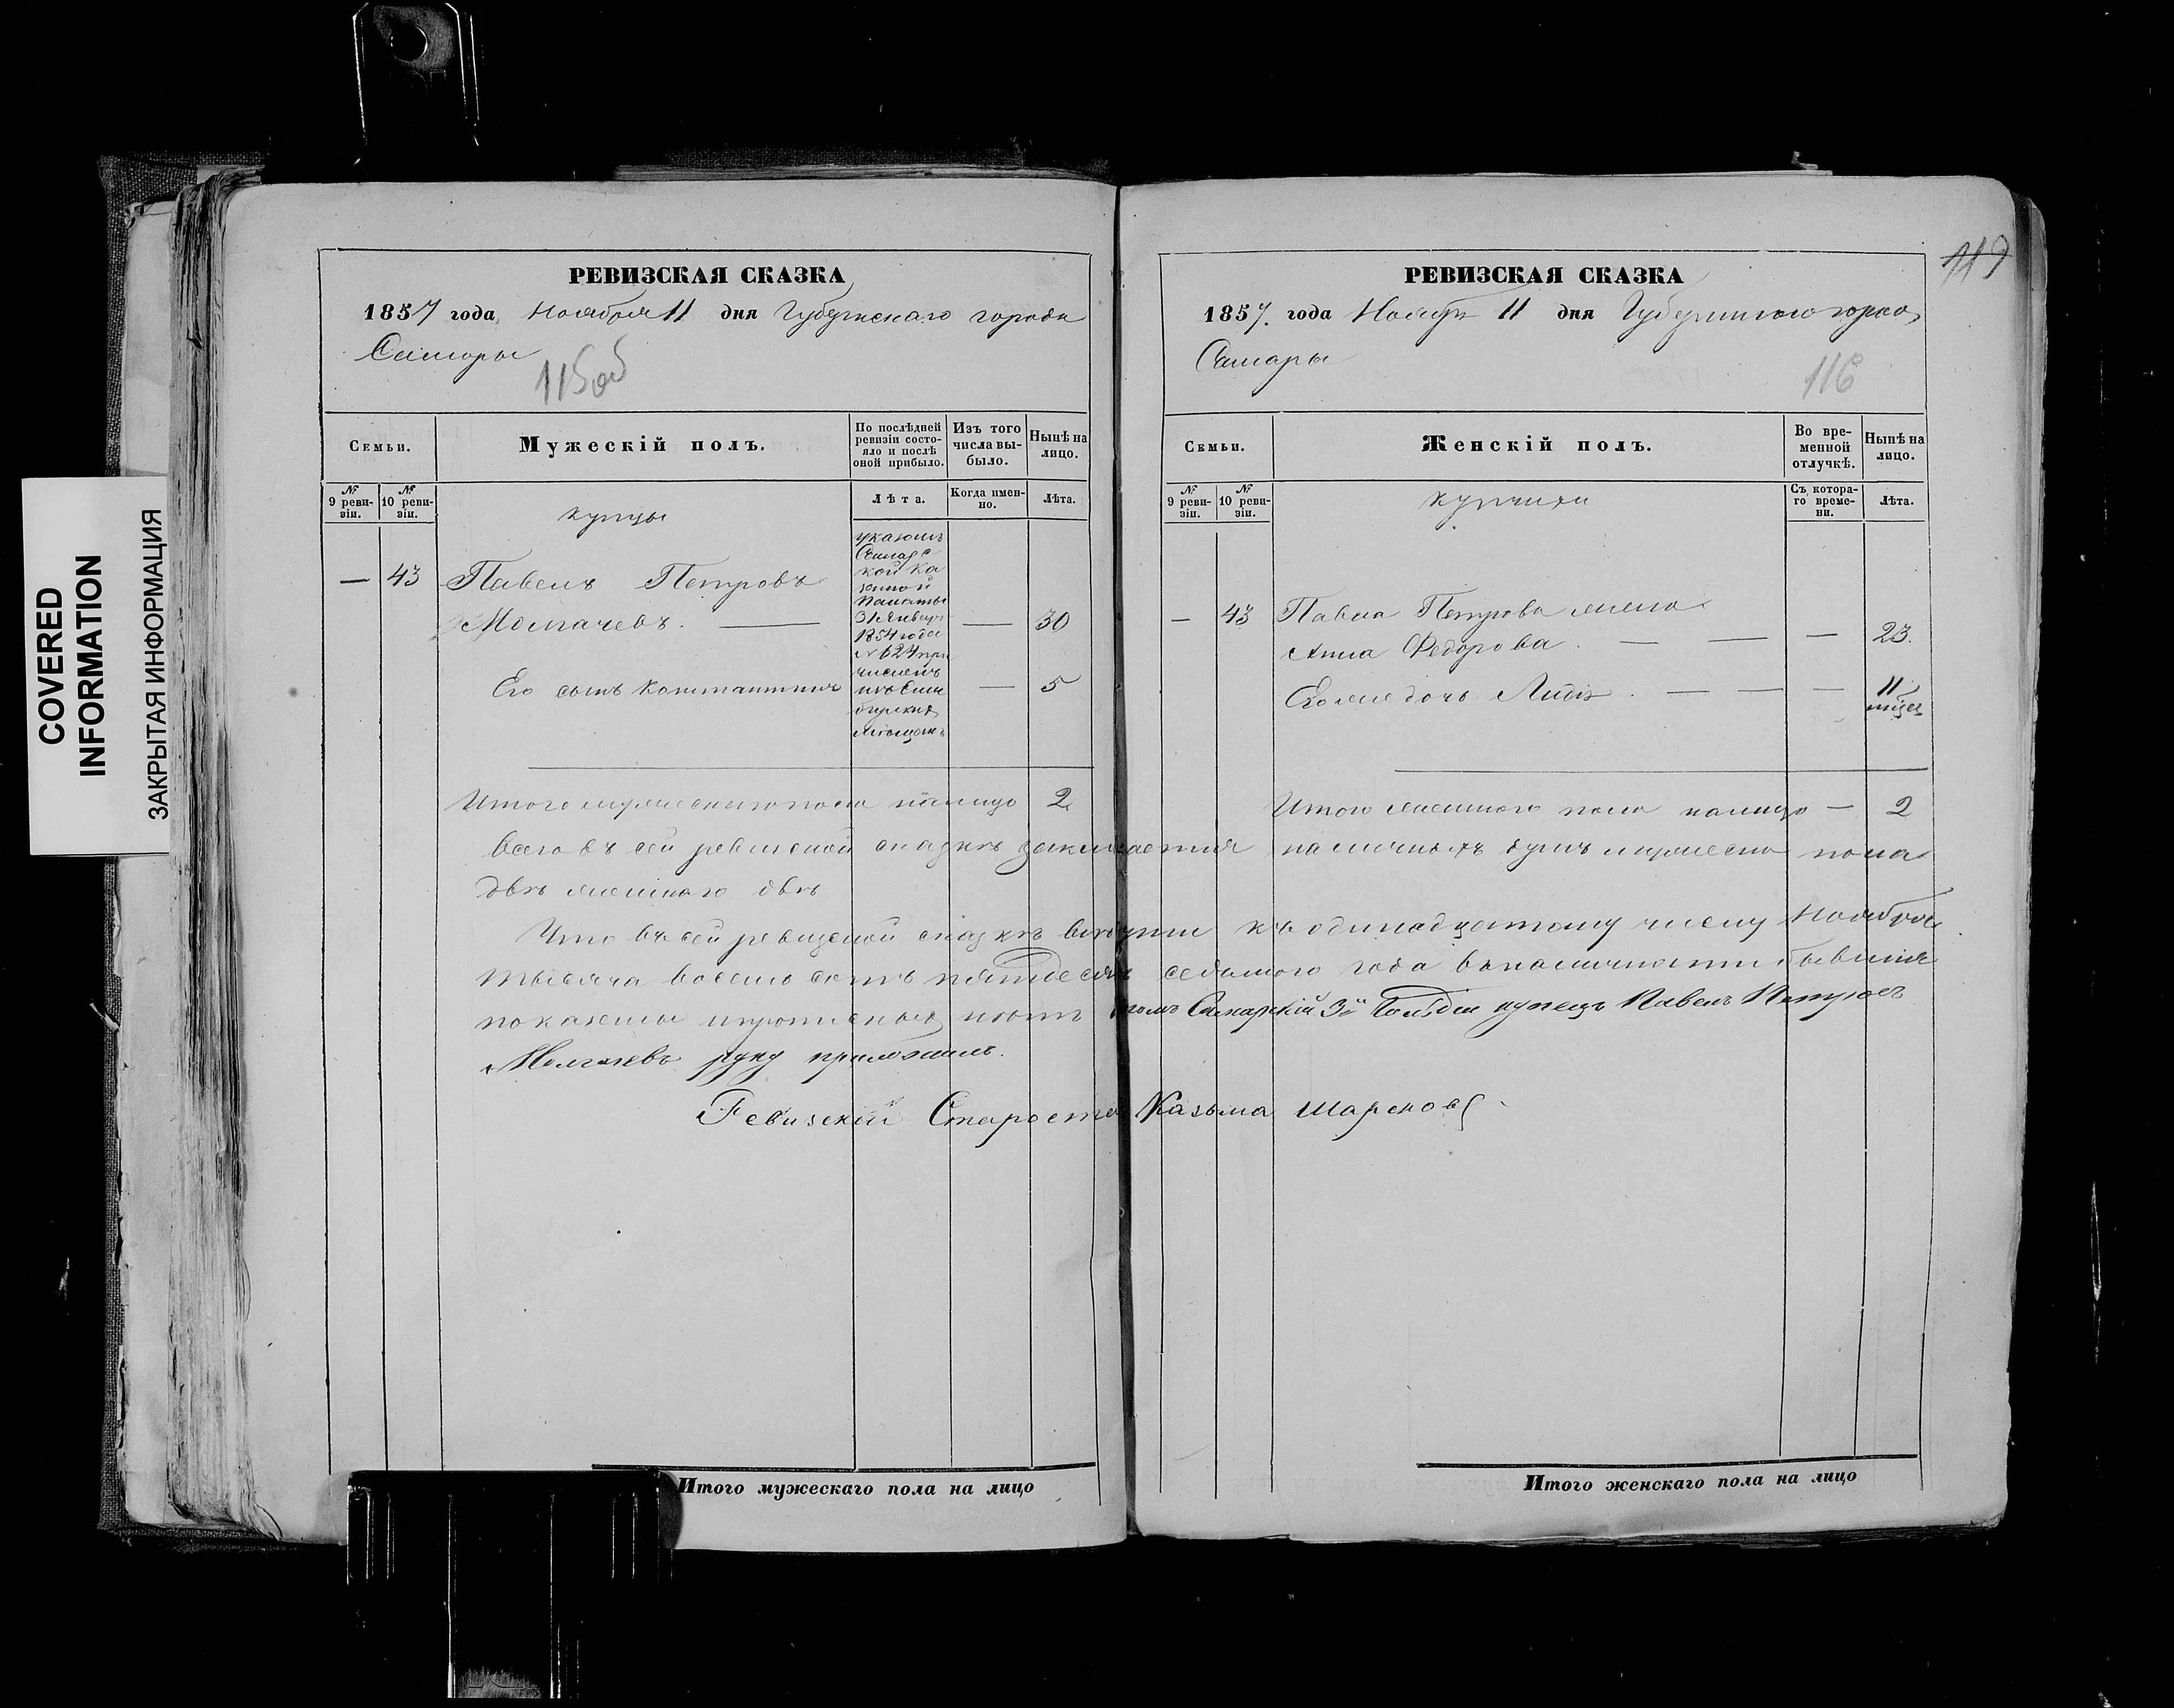 COVERED
INFORMATION
ЗАКРЫТАЯ ИНФОРМАЦИЯ
РЕВИЗСКАЯ СКАЗКА
1857 года, Ноября 11 дня Губернскаго города
Самары
115об
Семьи.
Мужескій полъ.
По послѣдней ревизіи состояло и послѣ оной прибыло.
Изъ того числа выбыло.
Нынѣ на лицо.
№ 9 ревизіи.
№ 10 ревизіи.
Лѣта.
Когда именно.
Лѣта.
купцы
— 43 Павелъ Петровъ
Молгачевъ. — — 30
указомъ
Самарс
кой Ка
зенной
Палаты
31 Января
1854 года
№ 624 при
численъ
изъ Сим
бирских
мѣщанъ
Его сынъ Константинъ — 5
Итого мужескаго пола на лицо 2
РЕВИЗСКАЯ СКАЗКА
1857. года Ноября 11 дня Губернскаго города
Самары
116
119
Семьи.
Женскій полъ.
Во временной отлучкѣ.
Нынѣ на лицо.
№ 9 ревизіи.
№ 10 ревизіи.
Съ котораго времени.
Лѣта.
купчихи
— 43 Павла Петрова жена
Анна Федорова. — — — 23.
Его же дочь Лидія. — — — 11 мѣсец
Итого женскаго пола на лицо — 2
Всего въ сей ревизской сказкѣ заключается наличныхъ душъ мужеска пола
двѣ женскаго двѣ
Что въ сей ревизской сказкѣ всѣ души къ одинадцатому числу Ноября
тысяча восемь сотъ пятдесятъ седьмого года въ наличности бывшия
показаны и прописныхъ нѣтъ томъ Самарскій 3й Гильдіи купецъ Павелъ Петровъ
Молгачевъ руку приложилъ.
Ревизскій Староста Казьма
Итого мужескаго пола на лицо
Итого женскаго пола на лицо